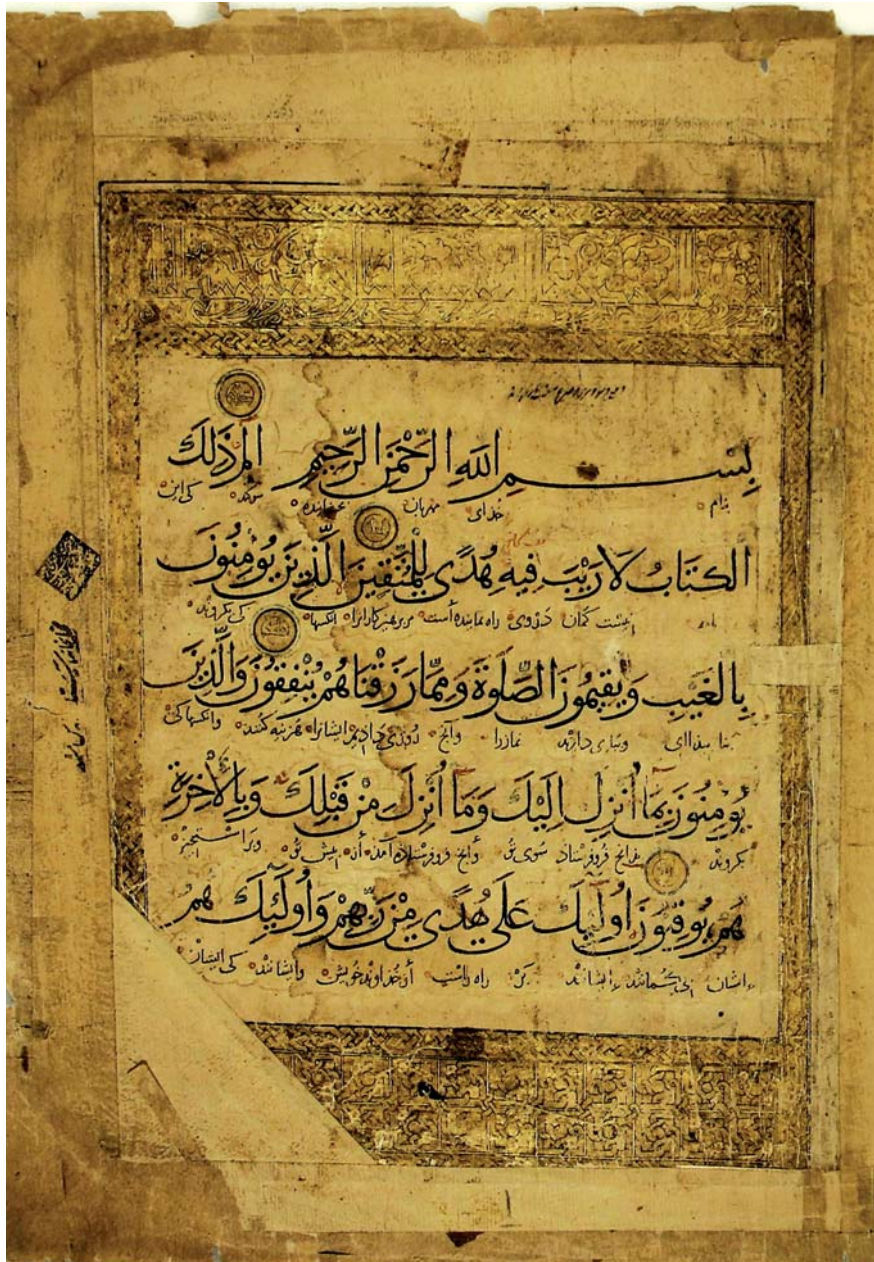 بِسْمِ اللَّهِ الرَّحْمَنِ الرَّحِيمِ الم ذَلِكَ
بنام خدای مهربان بخشاینده کی این
الْكِتَابُ لَا رَيْبَ فِيهِ هُدًى لِلْمُتَّقِينَ الَّذِينَ يُؤْمِنُونَ
نیست گمان دروی راه نماینده است مر پرهیزکارانرا آنکسها کی بکروند
بِالْغَيْبِ وَيُقِيمُونَ الصَّلَوٰةَ وَمِمَّا رَزَقْنَاهُمْ يُنْفِقُونَ وَالَّذِينَ
وبپای دارند نمازرا وآنچ روزی دادیم ایشانرا هزینه کنند وآنکسها کی
يُؤْمِنُونَ بِمَا أُنْزِلَ إِلَيْكَ وَمَا أُنْزِلَ مِنْ قَبْلِكَ وَبِالْآخِرَةِ
بکروند بدانچ فروفرستاد سوی تو وآنچ فروفرستاده آمد از پیش تو
هُمْ يُوقِنُونَ أُولَٰئِكَ عَلَى هُدًى مِنْ رَبِّهِمْ وَأُولَٰئِكَ هُمُ
ایشان بی گمانند ایشانند بر راه راست از خداوند خویش وایشانند کی ایشان